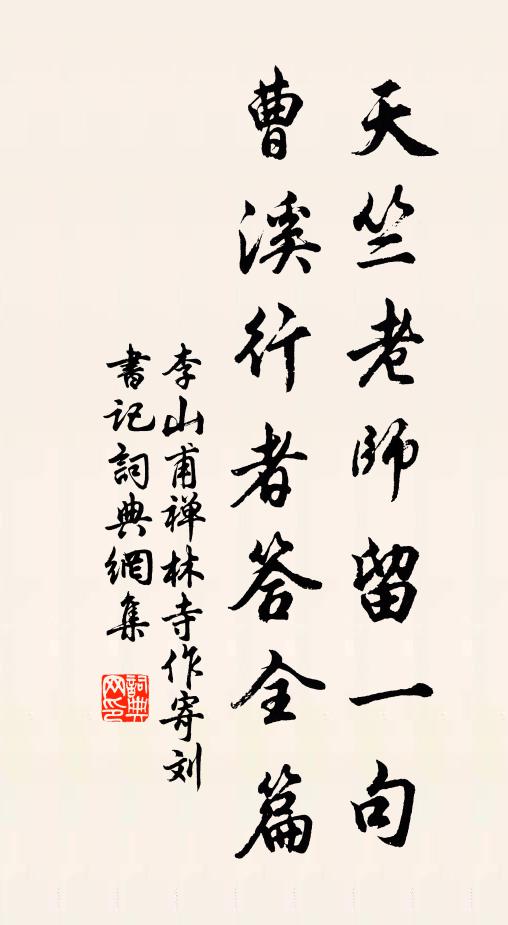 天竺老師留一句
曹溪行者答全篇
李山甫禅林寺作寄刘
書記詞典網集
詞典网印